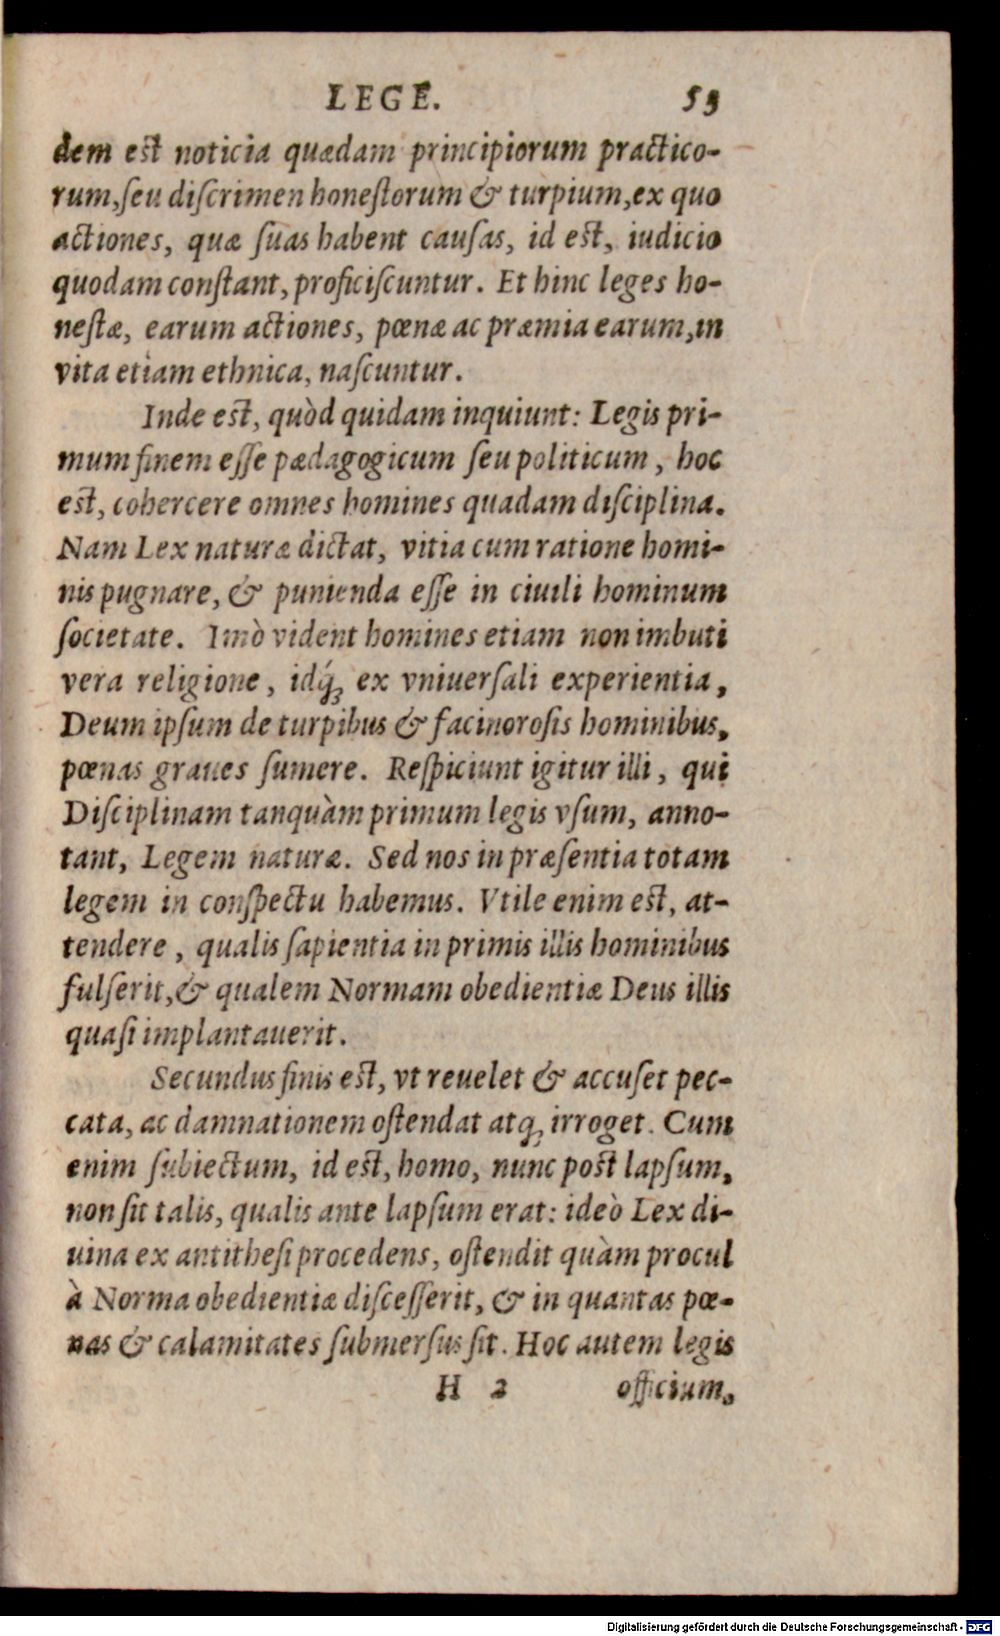 LEGE. 53
dem est noticia quædam principiorum practico-
rum, ſeu diſcrimen honeſtorum & turpium, ex quo
actiones, quæ ſuas habent cauſas, id est, iudicio
quodam conſtant, proficiſcuntur. Et hinc leges ho-
neſtæ, earum actiones, pœnæ ac præmia earum, in
vita etiam ethnica, naſcuntur.
Inde est, quòd quidam inquiunt: Legis pri-
mum finem eſſe pædagogicum ſeu politicum, hoc
est, cohercere omnes homines quadam diſciplina.
Nam Lex naturæ dictat, vitia cum ratione homi-
nis pugnare, & punienda eſſe in ciuili hominum
ſocietate. Imò vident homines etiam non imbuti
vera religione, idq́ꝫ ex vniuerſali experientia,
Deum ipſum de turpibus & facinoroſis hominibus,
pœnas graues ſumere. Reſpiciunt igitur illi, qui
Diſciplinam tanquàm primum legis vſum, anno-
tant, Legem naturæ. Sed nos in præſentia totam
legem in conſpectu habemus. Vtile enim est, at-
tendere, qualis ſapientia in primis illis hominibus
fulſerit, & qualem Normam obedientiæ Deus illis
quaſi implantauerit.
Secundus finis est, vt reuelet & accuſet pec-
cata, ac damnationem oſtendat atqꝫ irroget. Cum
enim ſubiectum, id est, homo, nunc post lapſum,
non ſit talis, qualis ante lapſum erat: ideò Lex di-
uina ex antitheſi procedens, oſtendit quàm procul
à Norma obedientiæ diſceſſerit, & in quantas pœ-
nas & calamitates ſubmerſus ſit. Hoc autem legis
H 2 officium,
Digitalisierung gefördert durch die Deutsche Forschungsgemeinschaft - DFG